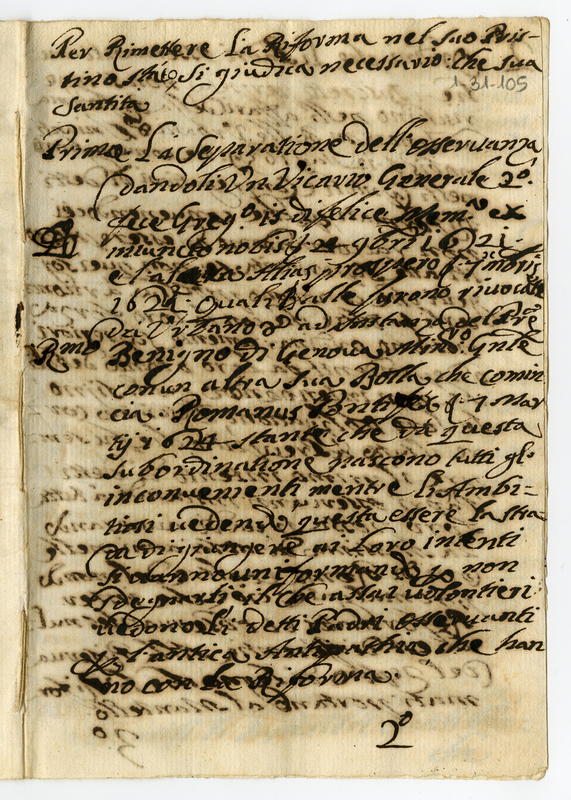 Per Rimettere La Riforma nel suo Pris-
tino stato, si giudica necessario che sua
1-31-105
Santita
Prima La Separatione dell'osservanza
dandoli Un Vicario Generale 2º.
Greg.º 15 di felice Mem.ª ex
iniuncto nobis 1621.
e l'altra Alias prospero
1624. quali Bolle furono rivocate
da Urbano 8º ad instanza del
Rmo Benigno di Genova Minº Gnle
con un altra sua Bolla, che comin
cia. Romanus Pontifex 7 Mar
tij 1624 stante che da questa
subordinatione nascono tutti gl'
inconvenienti mentre li Ambi=
tiosi vedendo questa essere la stra
da di giungere ai Loro intenti
si vanno uniformando p non
il che assai volontieri
vedono li detti Padri osservanti
p l'antica Antipathia che han
no con la Riforma.
2º